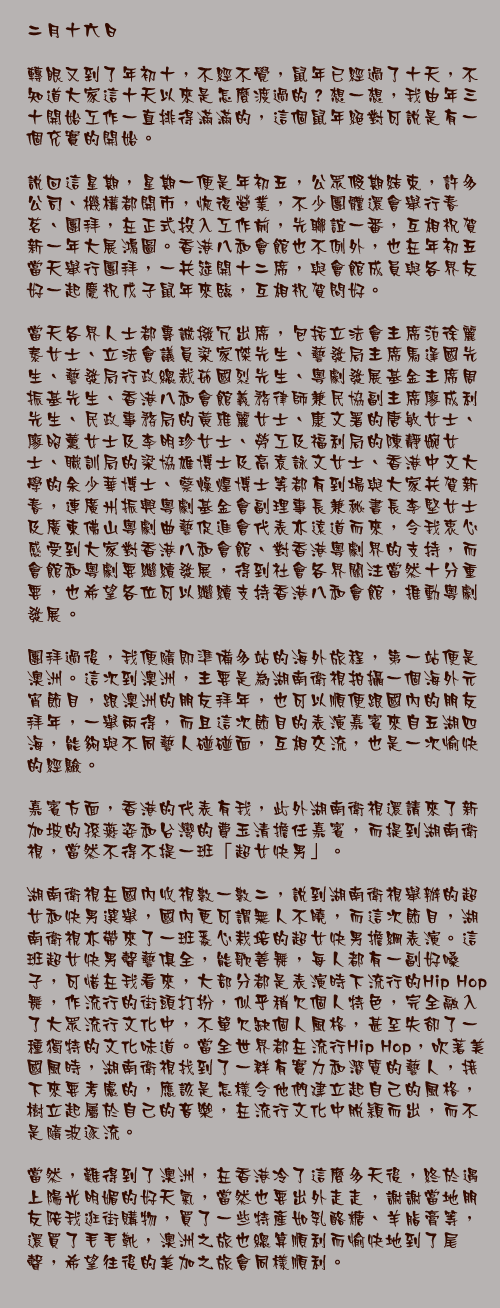 二月十六日
轉眼又到了年初十，不經不覺，鼠年已經過了十天，不
知道大家這十天以來是怎麼渡過的？想一想，我由年三
十開始工作一直排得滿滿的，這個鼠年絕對可說是有一
個充實的開始。
說回這星期，星期一便是年初五，公眾假期結束，許多
公司、機構都開市，恢復營業，不少團體還會舉行春
茗、團拜，在正式投入工作前，先聯誼一番，互相祝賀
新一年大展鴻圖。香港八和會館也不例外，也在年初五
當天舉行團拜，一共筵開十二席，與會館成員與各界友
好一起慶祝戊子鼠年來臨，互相祝賀問好。
當天各界人士都專誠撥冗出席，包括立法會主席范徐麗
泰女士、立法會議員梁家傑先生、藝發局主席馬逢國先
生、藝發局行政總裁茹國烈先生、粵劇發展基金主席周
振基先生、香港八和會館義務律師兼民協副主席廖成利
先生、民政事務局的黃雅麗女士、康文署的唐敏女士、
廖昭薰女士及李明珍女士、勞工及福利局的陳靜婉女
士、職訓局的梁協雄博士及高袁詠文女士、香港中文大
學的余少華博士、蔡燦煌博士等都有到場與大家共賀新
春，連廣州振興粵劇基金會副理事長兼秘書長李堅女士
及廣東佛山粵劇曲藝促進會代表亦遠道而來，令我衷心
感受到大家對香港八和會館、對香港粵劇界的支持，而
會館和粵劇要繼續發展，得到社會各界關注當然十分重
要，也希望各位可以繼續支持香港八和會館，推動粵劇
發展。
團拜過後，我便隨即準備多站的海外旅程，第一站便是
澳洲。這次到澳洲，主要是為湖南衛視拍攝一個海外元
宵節目，跟澳洲的朋友拜年，也可以順便跟國內的朋友
拜年，一舉兩得，而且這次節目的表演嘉賓來自五湖四
海，能夠與不同藝人碰碰面，互相交流，也是一次愉快
的經驗。
嘉賓方面，香港的代表有我，此外湖南衛視還請來了新
加坡的孫燕姿和台灣的費玉清擔任嘉賓，而提到湖南衛
視，當然不得不提一班「超女快男」。
湖南衛視在國內收視數一數二，說到湖南衛視舉辦的超
女和快男選舉，國內更可謂無人不曉，而這次節目，湖
南衛視亦帶來了一班悉心栽培的超女快男擔綱表演。這
班超女快男聲藝俱全，能歌善舞，每人都有一副好嗓
子，可惜在我看來，大部分都是表演時下流行的Hip Hop
舞，作流行的街頭打扮，似乎稍欠個人特色，完全融入
了大眾流行文化中，不單欠缺個人風格，甚至失卻了一
種獨特的文化味道。當全世界都在流行Hip Hop，吹著美
國風時，湖南衛視找到了一群有實力和潛質的藝人，接
下來要考慮的，應該是怎樣令他們建立起自己的風格，
樹立起屬於自己的音樂，在流行文化中脫穎而出，而不
是隨波逐流。
當然，難得到了澳洲，在香港冷了這麼多天後，終於遇
上陽光明媚的好天氣，當然也要出外走走，謝謝當地朋
友陪我逛街購物，買了一些特產如乳酪糖、羊脂膏等，
還買了毛毛靴，澳洲之旅也總算順利而愉快地到了尾
聲，希望往後的美加之旅會同樣順利。